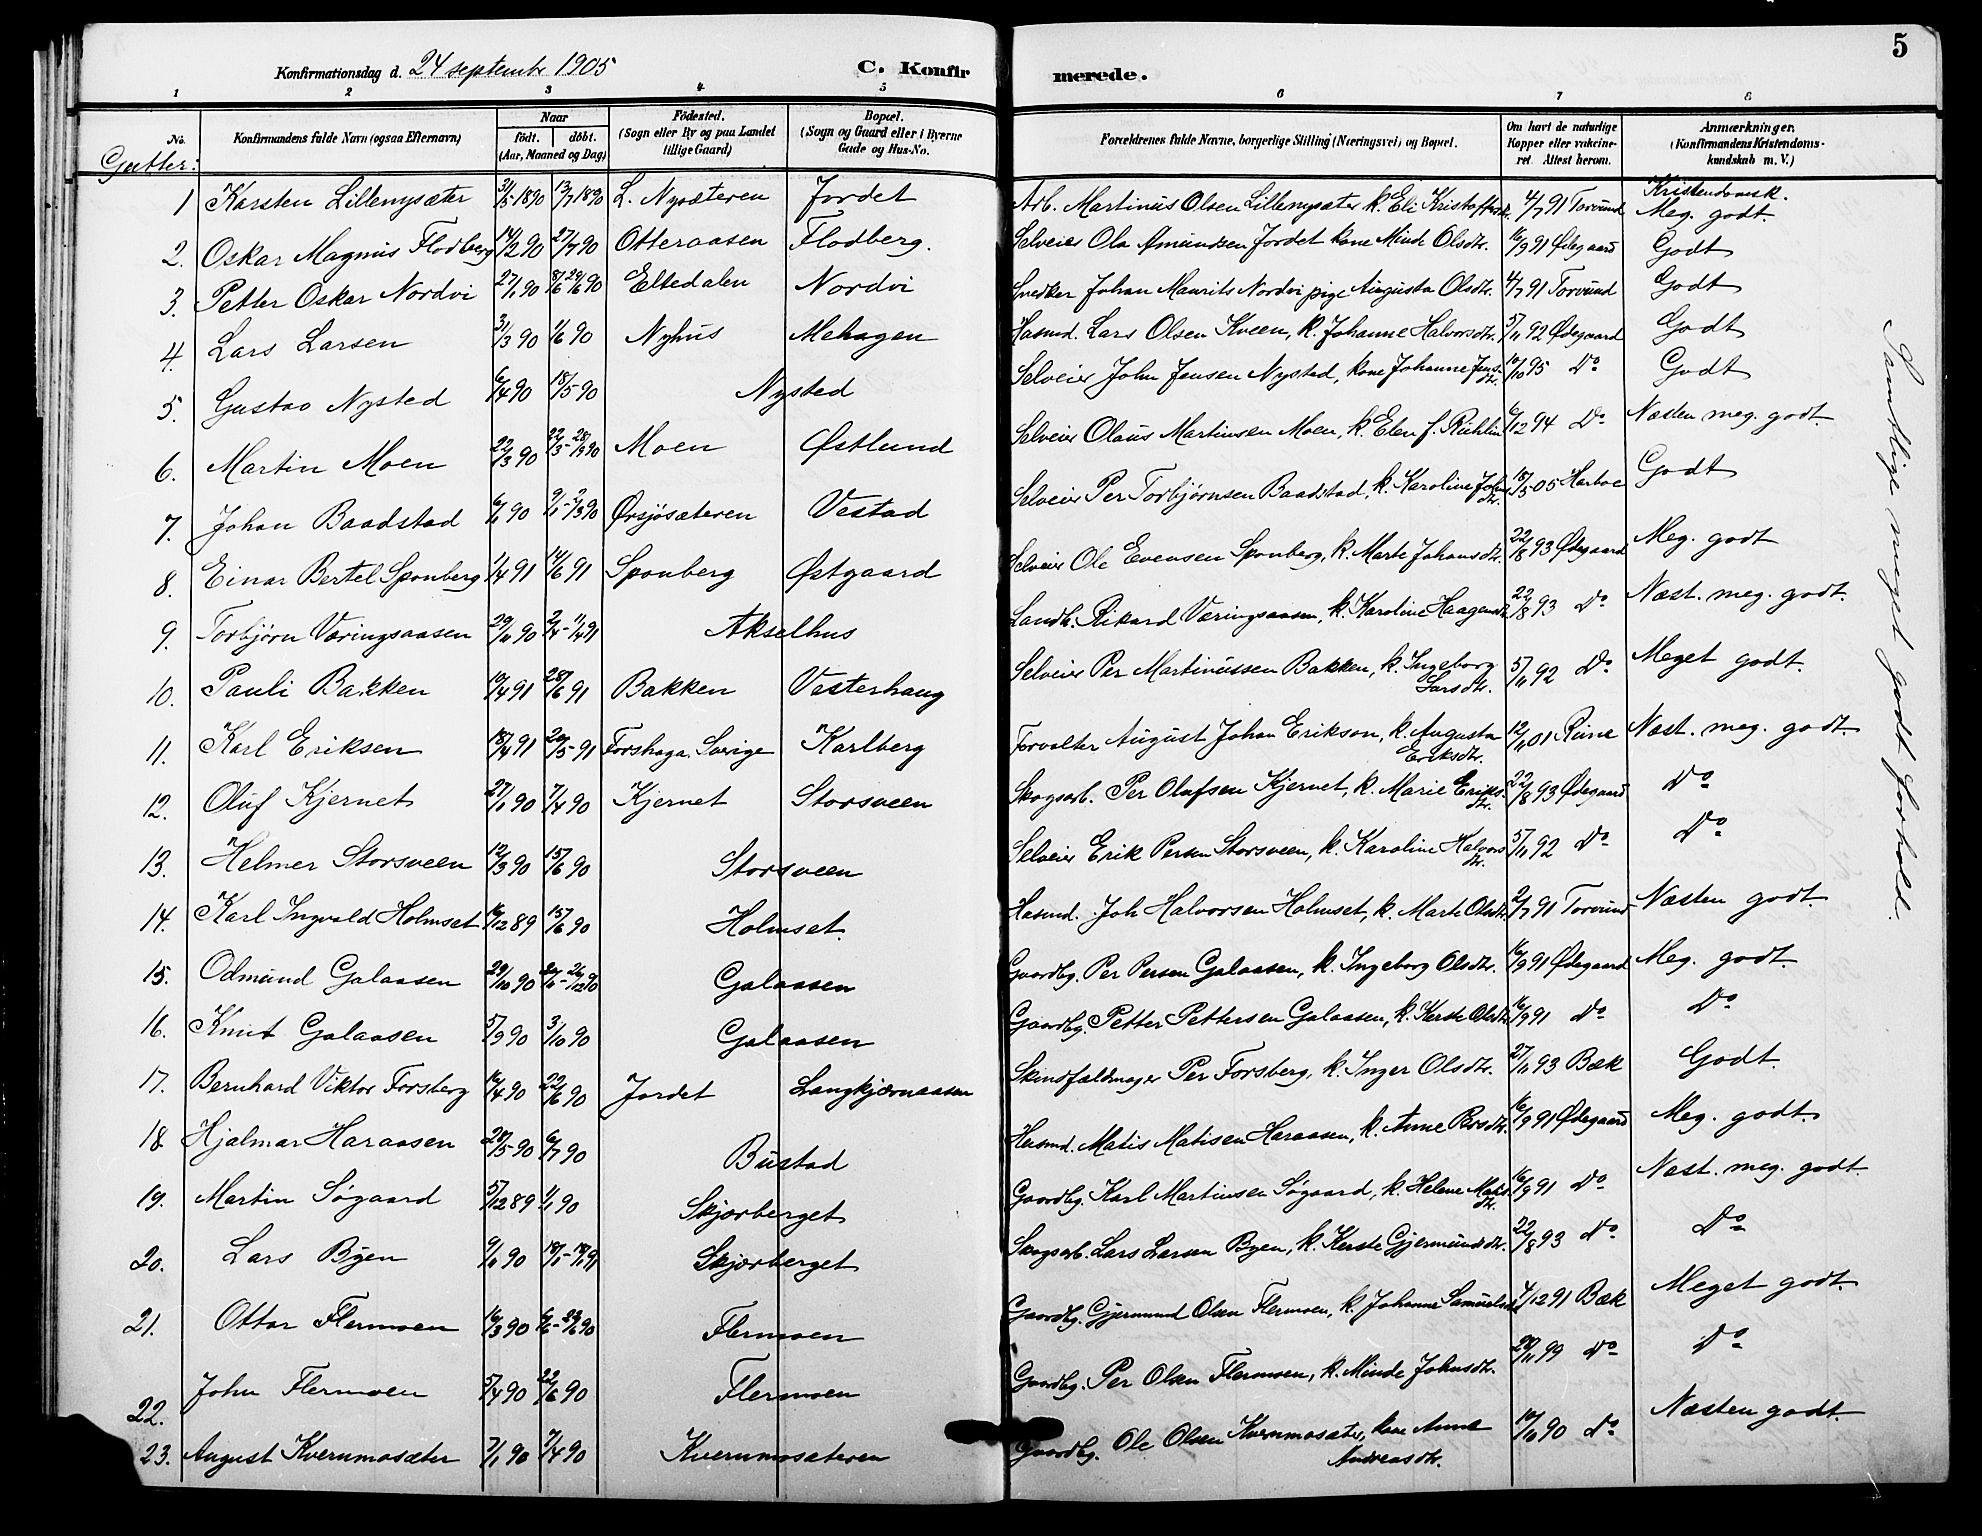 5
Konfirmationsdag d. 24 septembr 1905 C. Konfirmerede.
1 2 3 4 5 6 7 8
No. Konfirmandens fulde Navn (ogsaa Efternavn) Naar födt. döbt. (Aar, Maaned og Dag) Födested. (Sogn eller By og paa Landet tillige Gaard) Bopæl. (Sogn og Gaard eller i Byerne Gade og Hus-No. Forældrenes fulde Navne, borgerlige Stilling (Næringsvei) og Bopæl. Om havt de naturlige Kopper eller vakcineret. Attest herom. Anmærkninger. (Konfirmandens Kristendomskundskab m. V.)
Gutter:
1 Karsten Lillenysæter 31/5-1890 13/7 1890 L. Nysæteren Jordet Arb. Martinus Olsen Lillenysæter k. Eli Kristoffersdtr. 4/7 91 Torvund Kristendomsk. Meg. godt.
2. Oskar Magnus Flodberg 14/2 90 27/7 90 Otteraasen Flodberg. Selveier Ola Amundsen Jordet kone Minde Olsdtr. 16/9 91 Ødegaard Godt
3. Petter Oskar Nordvi 27/1 90 8/6 29/6 90 Eltedalen Nordvi Snedker Johan Maurits Nordvi pige Augusta Olsdtr. 4/7 91 Torvund Godt
4. Lars Larsen 31/3 90 1/6 90 Nyhus Mehagen Husmd. Lars Olsen Kveen, k. Johanne Halvorsdtr. 5/11 92 Ødegaard Godt
5. Gustav Nysted 6/4 90 18/5-90 Nysted Selveier John Jensen Nystad, kone Johanne Jensdtr. 10/10 95 Do Godt
6. Martin Moen 22/3 90 22/3-28/9 90 Moen Østlund Selveier Olaus Martinsen Moen, k. Elen f. Rühlin 6/12 94 Do Næsten meg. godt.
7. Johan Baadstad 6/1 90 9/1-2/3 90 Ørsjøsæteren Vestad Selveier Per Torbjørnsen Baadstad, k. Karoline Johnsdtr. 18/5 05 Harboe Godt
8. Einar Bertel Sponberg 1/4 91 14/6 91 Sponberg Østgaard Selveier Ole Evensen Sponberg, k. Marte Johansdtr. 22/8 93 Ødegaard Meg. godt
9. Torbjørn Væringsaasen 29/11 90 2/4-1/4 91 Akselhus Landh. Rikard Væringsaasen, k. Karoline Haagensdtr. 22/8 93 Do Næst. meg. godt.
10. Pauli Bakken 10/4 91 28/6 91 Bakken Vesterhaug Selveier Per Martinussen Bakken, k. Ingeborg Larsdtr. 5/11 92 Do Meget godt.
11. Karl Eriksen 18/4 91 20/5-91 Forshaga. Sverige Karlberg Forvalter August Johan Erikson, k. Augusta Eriksdtr. 12/11 01 Næst. meg. godt.
12. Oluf Kjernet 27/1 90 7/4 90 Kjernet Storsveen Skogsarb. Per Olufsen Kjernet, k. Marie Eriksdtr. 22/8 93 Ødegaard Do
13. Helmer Storsveen 12/3 90 15/6 90 Storsveen Selveier Erik Persen Storsveen, k. Karoline Halvorsdtr. 5/11 92 Do Do
14. Karl Ingvald Holmset 16/12 89 15/6 90 Holmset. Husmd. Joh Halvorsen Holmset, k. Marte Olsdtr. 2/7 91 Torvund Næsten godt.
15. Odmund Galaasen 29/10 90 26/12 90 Galaasen Gaardbg. Per Persen Galaasen, k. Ingeborg Olsdtr. 16/9 91 Ødegaard Meg. godt.
16. Knut Galaasen 5/9 90 3/10 90 Galaasen Gaardbg. Petter Pettersen Galaasen, k. Kerste Olsdtr. 16/9 91 Do Do
17. Bernhard Viktor Forsberg 16/4 90 22/6 90 Jordet Langkjærnaasen Skindfældmager Per Forsberg, k. Inger Olsdtr. 27/11 93 Bæk Godt.
18. Hjalmar Haraasen 28/5-90 6/7 90 Bustad Husmd. Matis Matisen Haraasen, k. Anne Persdtr. 16/9 91 Ødegaard Meg. godt.
19. Martin Søgaard 5/12 89 1/1 90 Skjærberget Gaardbg. Karl Martinsen Søgaard, k. Helene Matisdtr. 16/9 91 Do Næst. meg. godt.
20. Lars Byen 9/11 90 Skjærberget Skogsarb. Lars Larsen Byen, k. Kerste Gjermundsdtr. 22/8 93 Do Do
21. Ottar Flermoen 16/3 90 6/6-22/6 90 Flermoen Gaardbg. Gjermund Olsen Flermoen, k. Johanne Samuelsdtr. 4/12 91 Bæk Meget godt.
22. John Flermoen 5/4 90 22/6 90 Flermoen Gaardbg. Per Olsen Flermoen, k. Minde Johnsdtr. 28/11 99 Do Do
23. August Kvernmosæter 7/1 90 7/4 90 Kvernmosæteren Gaardbg. Ole Olsen Kvernmosæter, kone Anne Andreasdtr. 10/11 90 Do Næsten godt.
Samtlige meget godt forhold.